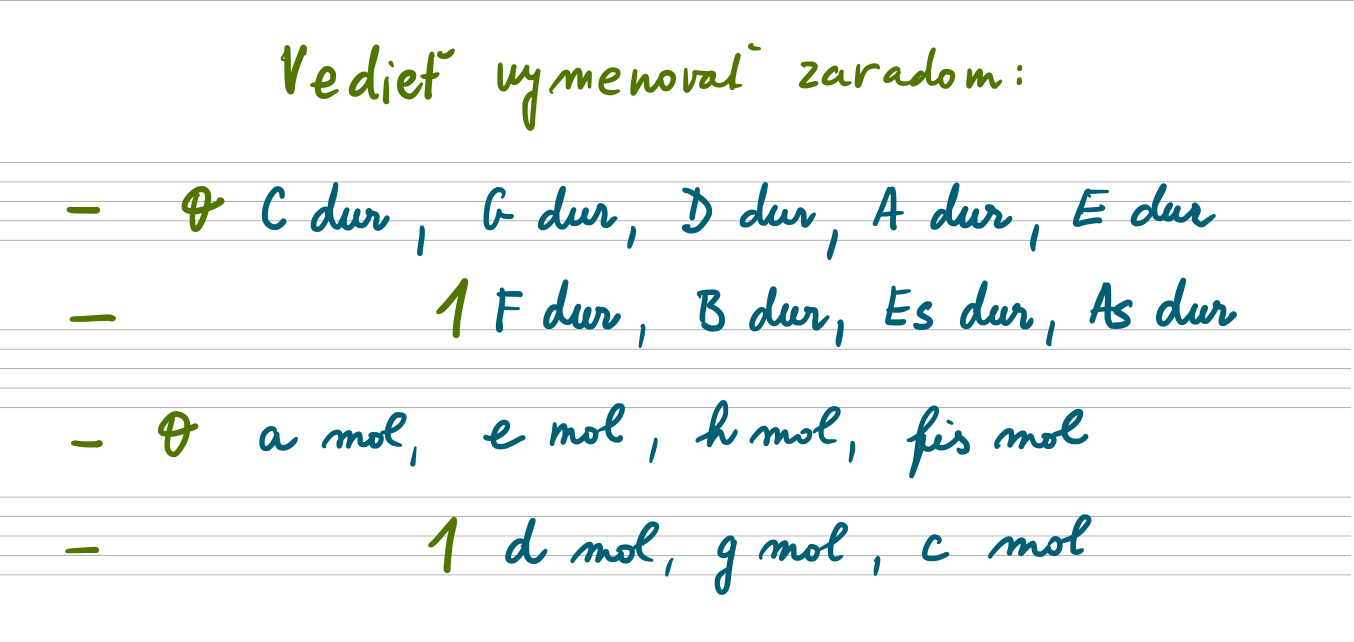 Vedieť vymenovať zaradom:
- 0 C dur, G dur, D dur, A dur, E dur
- 1 F dur, B dur, Es dur, As dur
- 0 a mol, e mol, h mol, fis mol
- 1 d mol, g mol, c mol